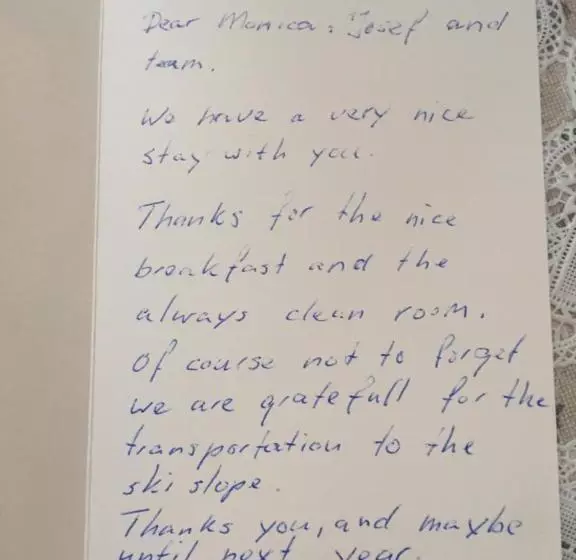 Dear Monica, Josef and
team.
We have a very nice
stay with you.
Thanks for the nice
breakfast and the
always clean room.
Of course not to forget
we are gratefull for the
transportation to the
ski slope.
Thanks you, and maybe
until next year.